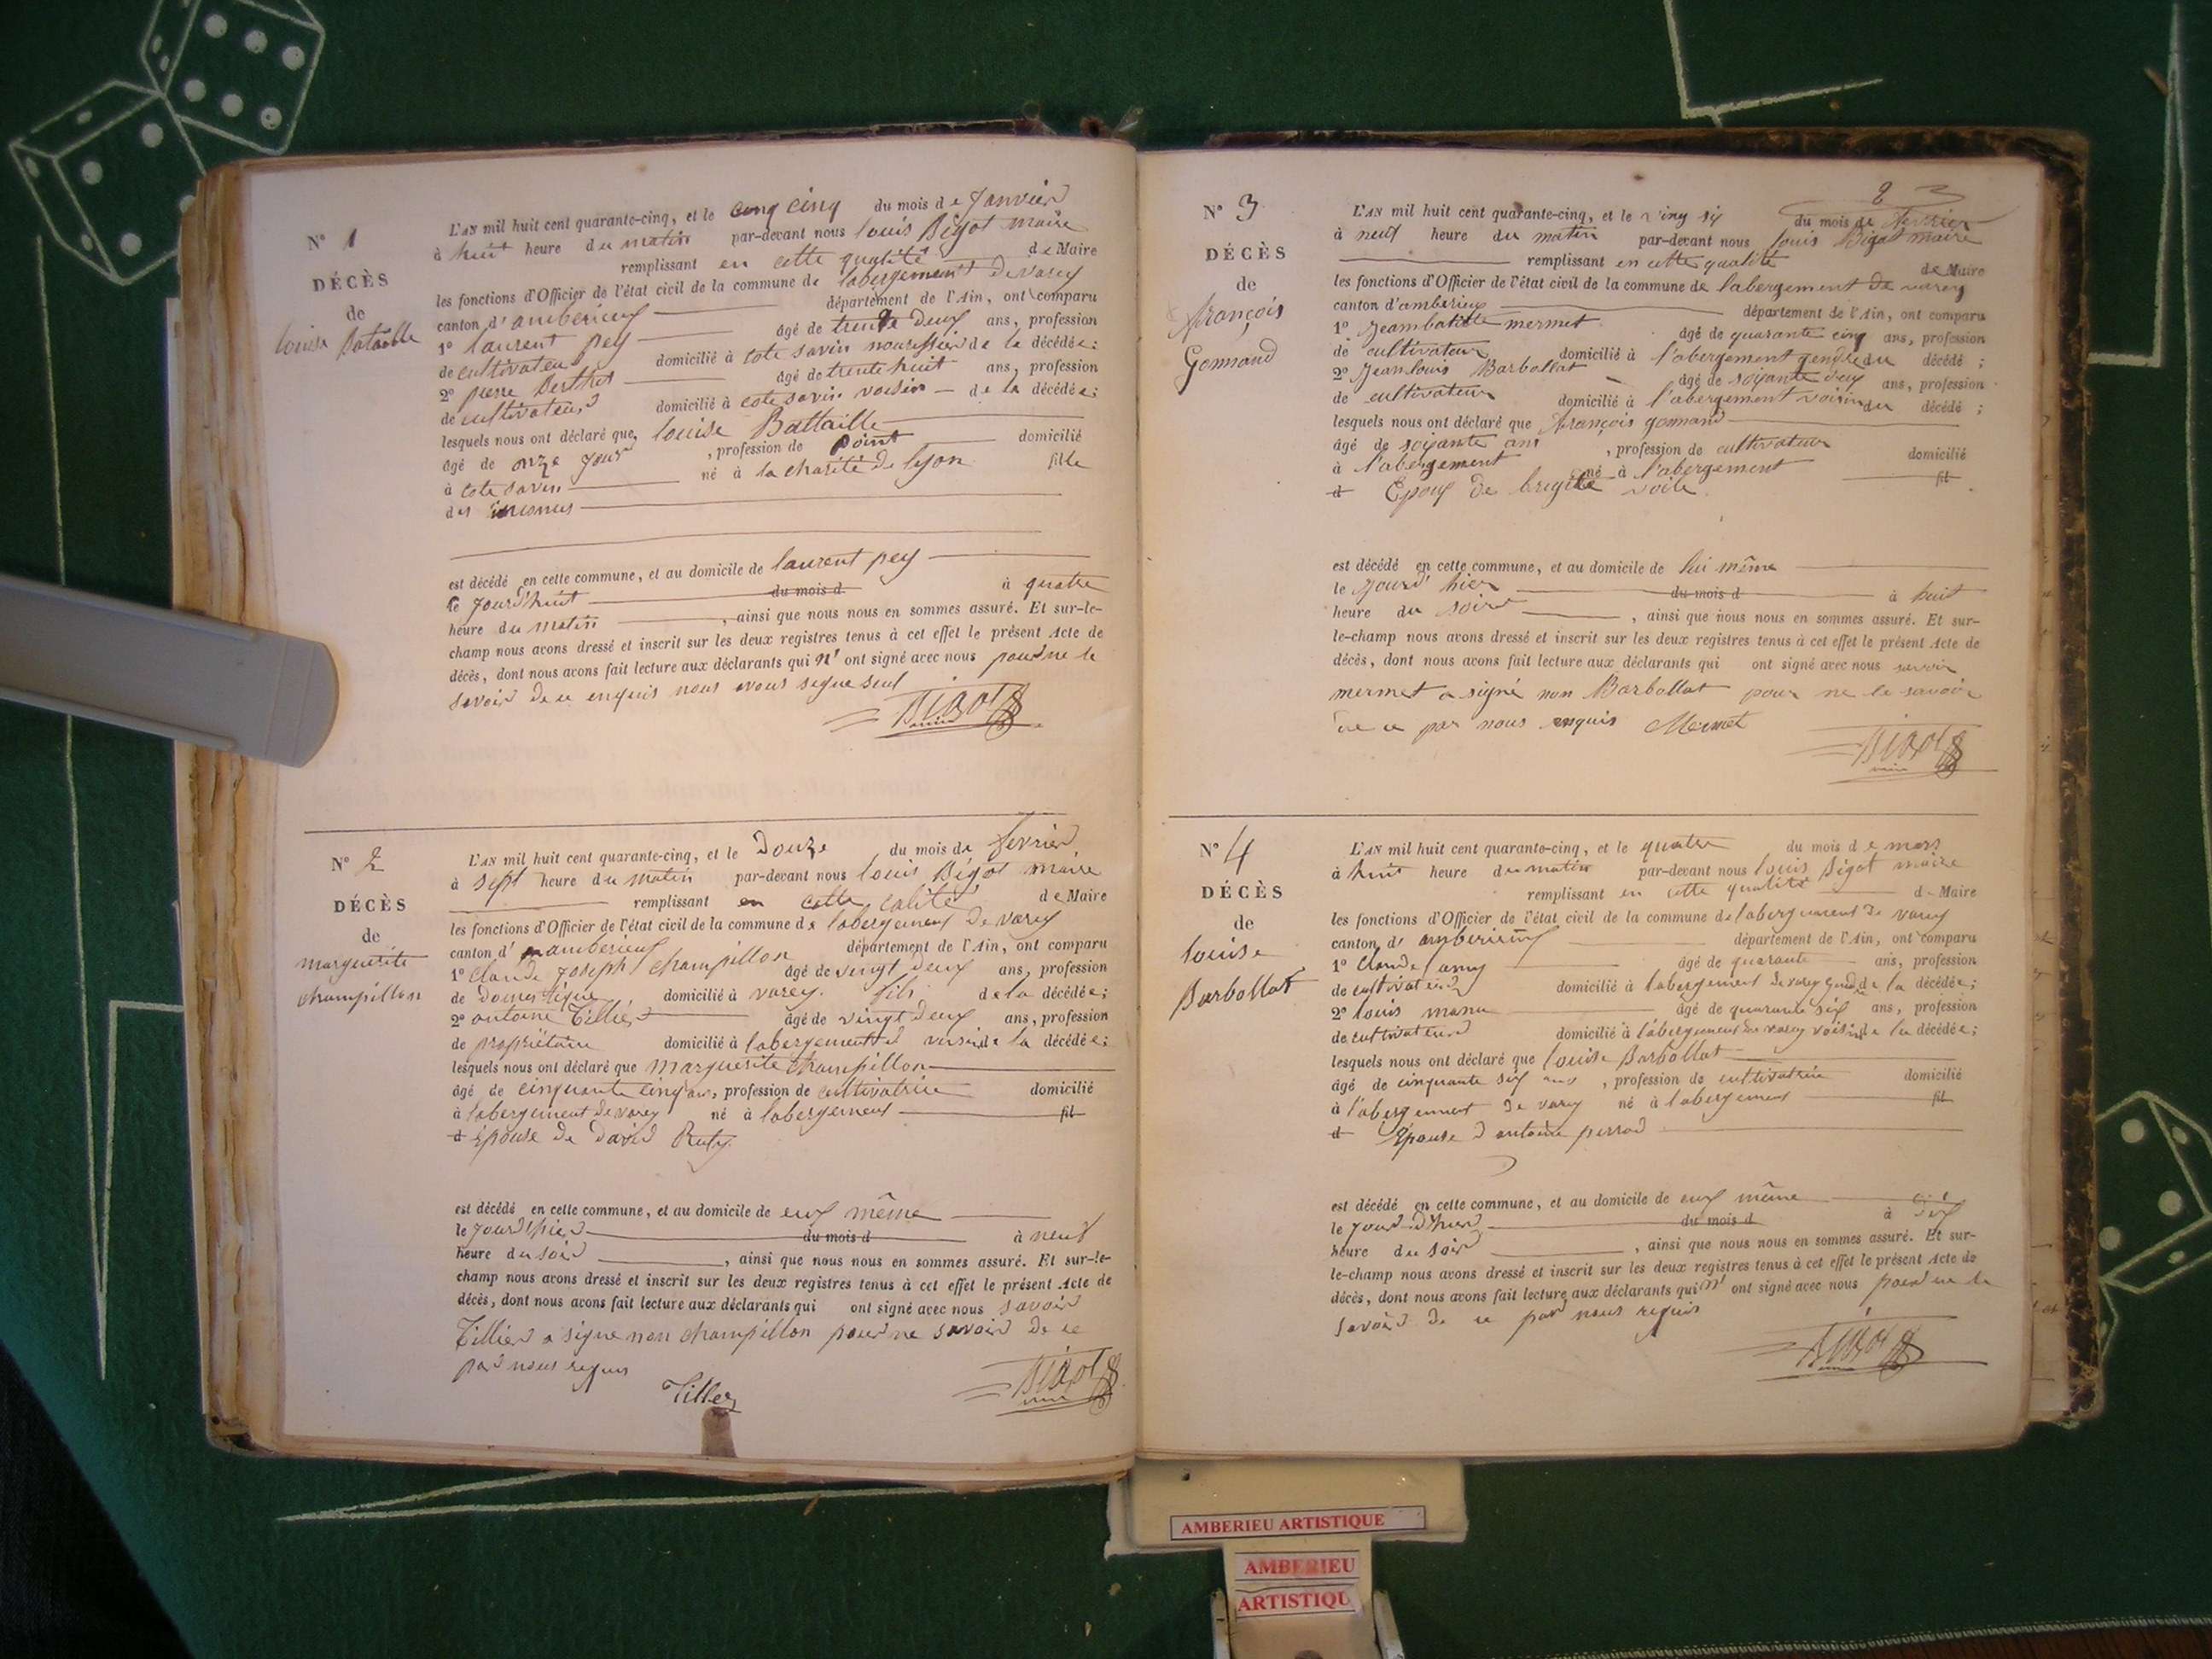 N° 1
DÉCÈS
de
louise Bataille
L'AN mil huit cent quarante-cinq, et le cinq du mois de Janvier
à huit heure du matin par-devant nous louis Bigot maire
remplissant en cette qualité de Maire
les fonctions d'Officier de l'état civil de la commune de labergement de varey
canton d'amberieux département de l'Ain, ont comparu
1° laurent pey âgé de trente deux ans, profession
de cultivateur domicilié à cote savin nourissier de la décédée;
2° pierre Berthet âgé de trente huit ans, profession
de cultivateur domicilié à cote savin voisin de la décédée;
lesquels nous ont déclaré que louise Battaille
âgé de onze jour, profession de point domicilié
à cote savin né à la charité de lyon fille
des
est décédé en cette commune, et au domicile de laurent pey
le jourd'huit du mois d à quatre
heure du matin, ainsi que nous nous en sommes assuré. Et sur-le-
champ nous avons dressé et inscrit sur les deux registres tenus à cet effet le présent Acte de
décès, dont nous avons fait lecture aux déclarants qui n' ont signé avec nous pour ne le
savoir de ce enquis nous avons signe seul
Bigot
N° 2
DÉCÈS
de
marguerite
champillon
L'AN mil huit cent quarante-cinq, et le Douze du mois de fevrier
à sept heure du matin par-devant nous louis Bigot maire
remplissant en cette calité de Maire
les fonctions d'Officier de l'état civil de la commune de labergement de varey
canton d'amberieux département de l'Ain, ont comparu
1° Claude Joseph champillon âgé de vingt deux ans, profession
de Domestique domicilié à varey. fils de la décédée;
2° antoine Tillier âgé de vingt deux ans, profession
de propriétaire domicilié à labergement voisin de la décédée;
lesquels nous ont déclaré que marguerite champillon
âgé de cinquante cinq ans, profession de cultivatrice domicilié
à labergement de varey né à labergement fil
d Epouse de David Ruty
est décédé en cette commune, et au domicile de eux même
le jourd'hier du mois d à neuf
heure du soir, ainsi que nous nous en sommes assuré. Et sur-le-
champ nous avons dressé et inscrit sur les deux registres tenus à cet effet le présent Acte de
décès, dont nous avons fait lecture aux déclarants qui ont signé avec nous savoir
Tillier a signe non champillon pour ne savoir de ce
par nous requis
Tillier
Bigot
2
N° 3
DÉCÈS
de
françois
Gonnand
L'AN mil huit cent quarante-cinq, et le ving six du mois de fevrier
à neuf heure du matin par-devant nous louis Bigot maire
remplissant en cette qualité de Maire
les fonctions d'Officier de l'état civil de la commune de labergement de varey
canton d'amberieux département de l'Ain, ont comparu
1° Jeambatiste mermet âgé de quarante cinq ans, profession
de cultivateur domicilié à l'abergement gendre du décédé;
2° Jean louis Barbollat âgé de soixante deux ans, profession
de cultivateur domicilié à l'abergement voisin du décédé;
lesquels nous ont déclaré que françois gonnand
âgé de soixante ans, profession de cultivateur domicilié
à l'abergement né à l'abergement fil
d Epoux de brigite
est décédé en cette commune, et au domicile de lui même
le jourd'hier du mois d à huit
heure du soir, ainsi que nous nous en sommes assuré. Et sur-
le-champ nous avons dressé et inscrit sur les deux registres tenus à cet effet le présent Acte de
décès, dont nous avons fait lecture aux déclarants qui ont signé avec nous savoir
mermet a signé non Barbollat pour ne le savoir
de ce par nous enquis Mermet
Bigot
N° 4
DÉCÈS
de
louise
Barbollat
L'AN mil huit cent quarante-cinq, et le quatre du mois de mars
à huit heure du matin par-devant nous louis Bigot maire
remplissant en cette qualité de Maire
les fonctions d'Officier de l'état civil de la commune de labergement de varey
canton d'amberieux département de l'Ain, ont comparu
1° Claude âgé de quarante ans, profession
de cultivateur domicilié à labergement de varey gendre de la décédée;
2° louis âgé de quarante six ans, profession
de cultivateur domicilié à labergement de varey voisin de la décédée;
lesquels nous ont déclaré que louise Barbollat
âgé de cinquante six ans, profession de cultivatrice domicilié
à l'abergement de varey né à labergement fil
d Epouse d antoine perrod
est décédé en cette commune, et au domicile de eux même
le jourd'hier du mois d à six
heure du soir, ainsi que nous nous en sommes assuré. Et sur-
le-champ nous avons dressé et inscrit sur les deux registres tenus à cet effet le présent Acte de
décès, dont nous avons fait lecture aux déclarants qui n' ont signé avec nous pour ne le
savoir de ce par nous requis
Bigot
AMBERIEU ARTISTIQUE
AMBERIEU
ARTISTIQU